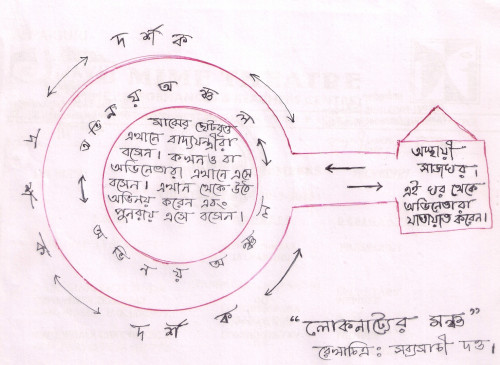 দর্শক
অভিনয় অঞ্চল
মাঝের ছোটবৃত্ত
এখানে বাদ্যযন্ত্রীরা
বসেন। কখনও বা
অভিনেতারা এখানে এসে
বসেন। এখান থেকে উঠে
অভিনয় করেন এবং
পুনরায় এসে বসেন।
অভিনয় অঞ্চল
দর্শক
দর্শক
অস্থায়ী
সাজঘর।
এই ঘর থেকে
অভিনেতারা
যাতায়াত করেন।
"লোকনাট্যের মঞ্চ"
রেখাচিত্র: সব্যসাচী দত্ত।